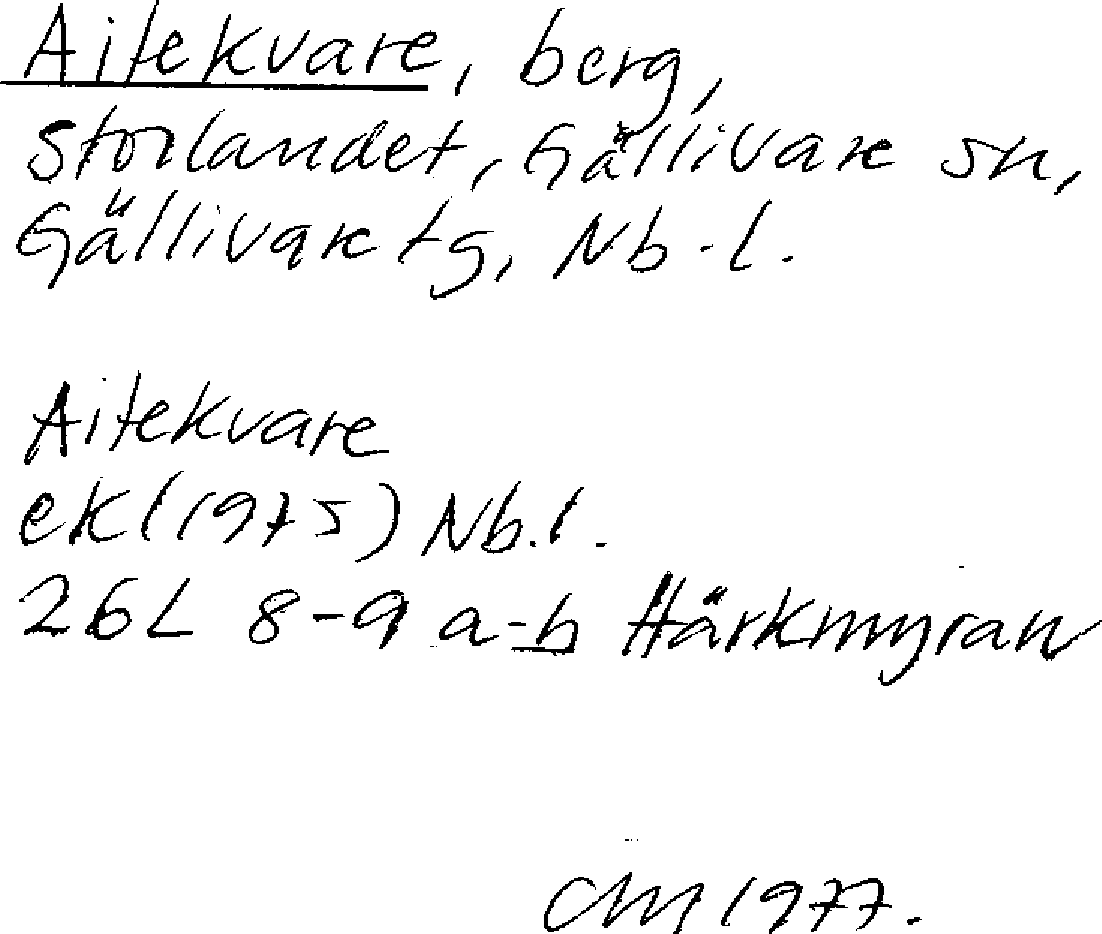 Aitekvare, berg,
Storlandet, Gällivare sn,
Gällivare tg, Nb.l.
Aitekvare
ek (1975) Nb.l.
26L 8-9 a-b Härkmyran
CM 1977.